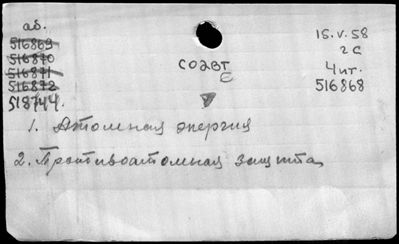 аб.
516869
516870
516871
516872
518744.
СО2ВТ
Е
15.V.58
2С
Чит.
516868
1. Атомная энергия
2. Противоатомная защита